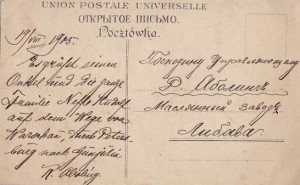 UNION POSTALE UNIVERSELLE
ОТКРЫТОЕ ПИСЬМО.
Pocztówka.
19/VIII 1905.
Es grüsst einen
Onkel und die ganze
Familie Neffe Rudolf
auf dem Wege von
Warschau, nach Peters-
burg nach
R.
Господину Управляющему
Р. Аболинъ
Маслянный заводъ
Либава